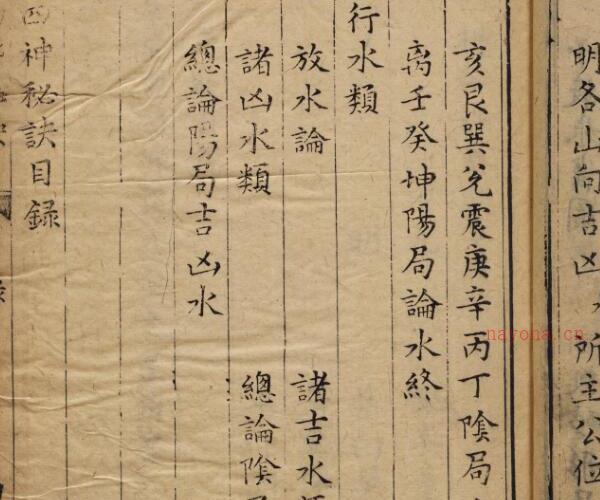 明各山向吉凶所主公位
亥艮巽兌震庚辛丙丁陰局
离壬癸坤陽局論水終
行水類
放水論 諸吉水
諸凶水類 總論陰
總論陽局吉凶水
神秘訣目録
nayona.cn